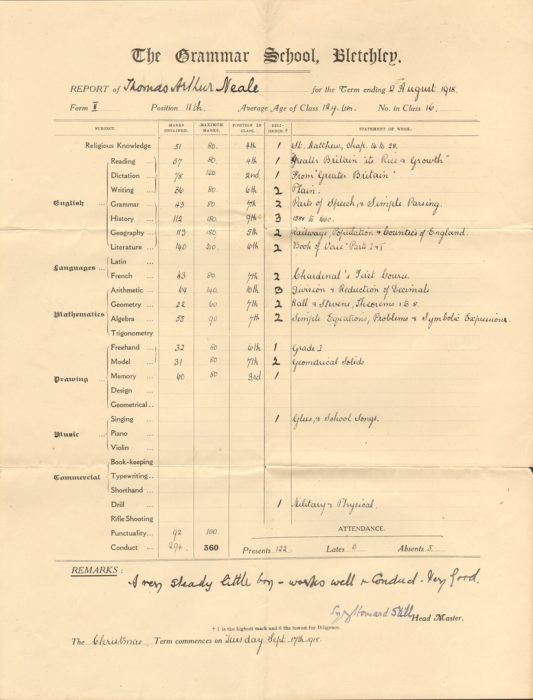 The Grammar School, Bletchley.
REPORT of Thomas Arthur Neale for the Term ending 2nd August 1918.
Form II Position 11th. Average Age of Class 12y. 6m. No. in Class 16.
SUBJECT. MARKS OBTAINED. MAXIMUM MARKS. POSITION IN CLASS. DILIGENCE † STATEMENT OF WORK.
Religious Knowledge 51 80 4th 1 St. Matthew, Chap. 16 to 28.
Reading ... 57 80 4th 1 "Greater Britain its Rise & Growth"
Dictation ... 78 120 2nd 1 From "Greater Britain"
Writing ... 36 80 6th 2 Plain.
English ... Grammar ... 43 80 7th 2 Parts of Speech, & Simple Parsing.
History ... 112 180 9th 3 to
Geography ... 113 180 5th 2 Railways, Population & Counties of England.
Literature ... 140 210 6th 2 "Book of Verse" Parts
Languages ... Latin ...
French ... 43 80 7th 2 Chardenal's First Course.
Arithmetic ... 64 140 10th 3 Division & Reduction of Decimals
Mathematics Geometry ... 22 60 7th 2 Hall & Stevens, Theorems 1 & 8.
Algebra ... 53 90 7th 2 Simple Equations, Problems & Symbolic Expressions.
Trigonometry
Freehand ... 32 80 6th 1 Grade I
Model ... 31 80 7th 2 Geometrical Solids
Drawing ... Memory ... 40 80 3rd 1
Design ...
Geometrical ..
Singing ... 1 Glees, & School Songs.
Music ... Piano ...
Violin ...
Book-keeping
Commercial Typewriting ..
Shorthand ...
Drill ... 1 Military & Physical.
Rifle Shooting
Punctuality... 92 100 ATTENDANCE.
Conduct ... 294 360 Presents 122 Lates 0 Absents 5
REMARKS: A very steady little boy - works well & Conduct - Very good.
Howard Head Master.
† 1 is the highest mark and 6 the lowest for Diligence.
The Christmas Term commences on Tuesday Sept. 17th 1918.